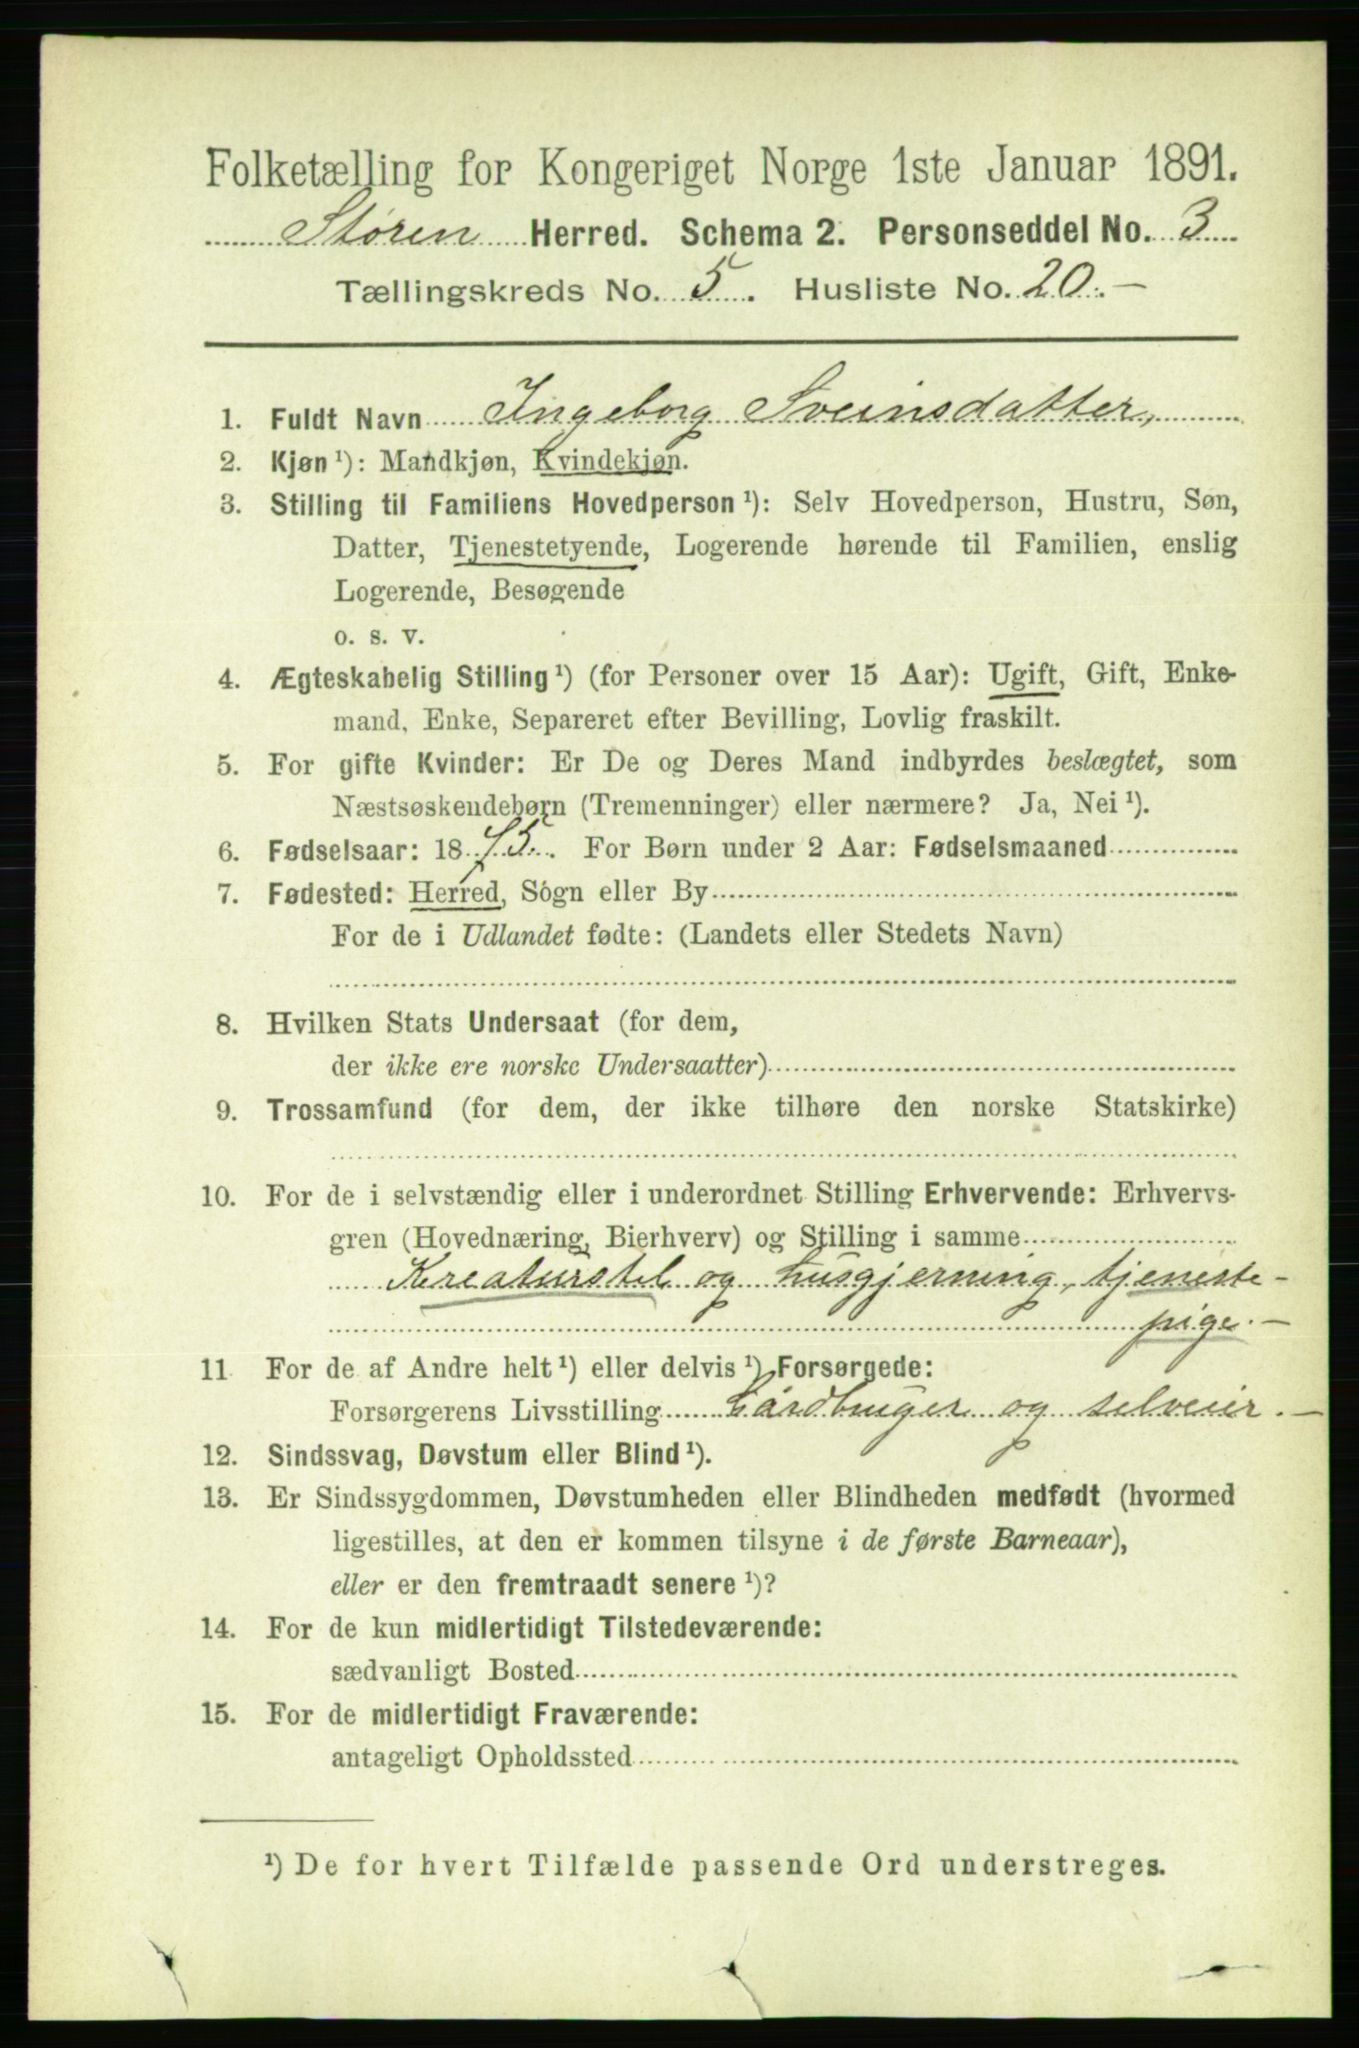 Folketælling for Kongeriget Norge 1ste Januar 1891.
Støren Herred. Schema 2. Personseddel No. 3
Tællingskreds No. 5. Husliste No. 20.-
1. Fuldt Navn Ingeborg Sveinsdatter,
2. Kjøn ¹): Mandkjøn, Kvindekjøn.
3. Stilling til Familiens Hovedperson ¹): Selv Hovedperson, Hustru, Søn,
Datter, Tjenestetyende, Logerende hørende til Familien, enslig
Logerende, Besøgende
o. s. v.
4. Ægteskabelig Stilling ¹) (for Personer over 15 Aar): Ugift, Gift, Enke-
mand, Enke, Separeret efter Bevilling, Lovlig fraskilt.
5. For gifte Kvinder: Er De og Deres Mand indbyrdes beslægtet, som
Næstsøskendebørn (Tremenninger) eller nærmere? Ja, Nei ¹).
6. Fødselsaar: 1875. For Børn under 2 Aar: Fødselsmaaned
7. Fødested: Herred, Sogn eller By
For de i Udlandet fødte: (Landets eller Stedets Navn)
8. Hvilken Stats Undersaat (for dem,
der ikke ere norske Undersaatter)
9. Trossamfund (for dem, der ikke tilhøre den norske Statskirke)
10. For de i selvstændig eller i underordnet Stilling Erhvervende: Erhvervs-
gren (Hovednæring, Bierhverv) og Stilling i samme
Kreaturstel og husgjerning, tjeneste-
pige.-
11 For de af Andre helt ¹) eller delvis ¹) Forsørgede:
Forsørgerens Livsstilling Gårdbruger og selveier.-
12. Sindssvag, Døvstum eller Blind ¹).
13. Er Sindssygdommen, Døvstumheden eller Blindheden medfødt (hvormed
ligestilles, at den er kommen tilsyne i de første Barneaar),
eller er den fremtraadt senere ¹)?
14. For de kun midlertidigt Tilstedeværende:
sædvanligt Bosted
15. For de midlertidigt Fraværende:
antageligt Opholdssted
¹) De for hvert Tilfælde passende Ord understreges.